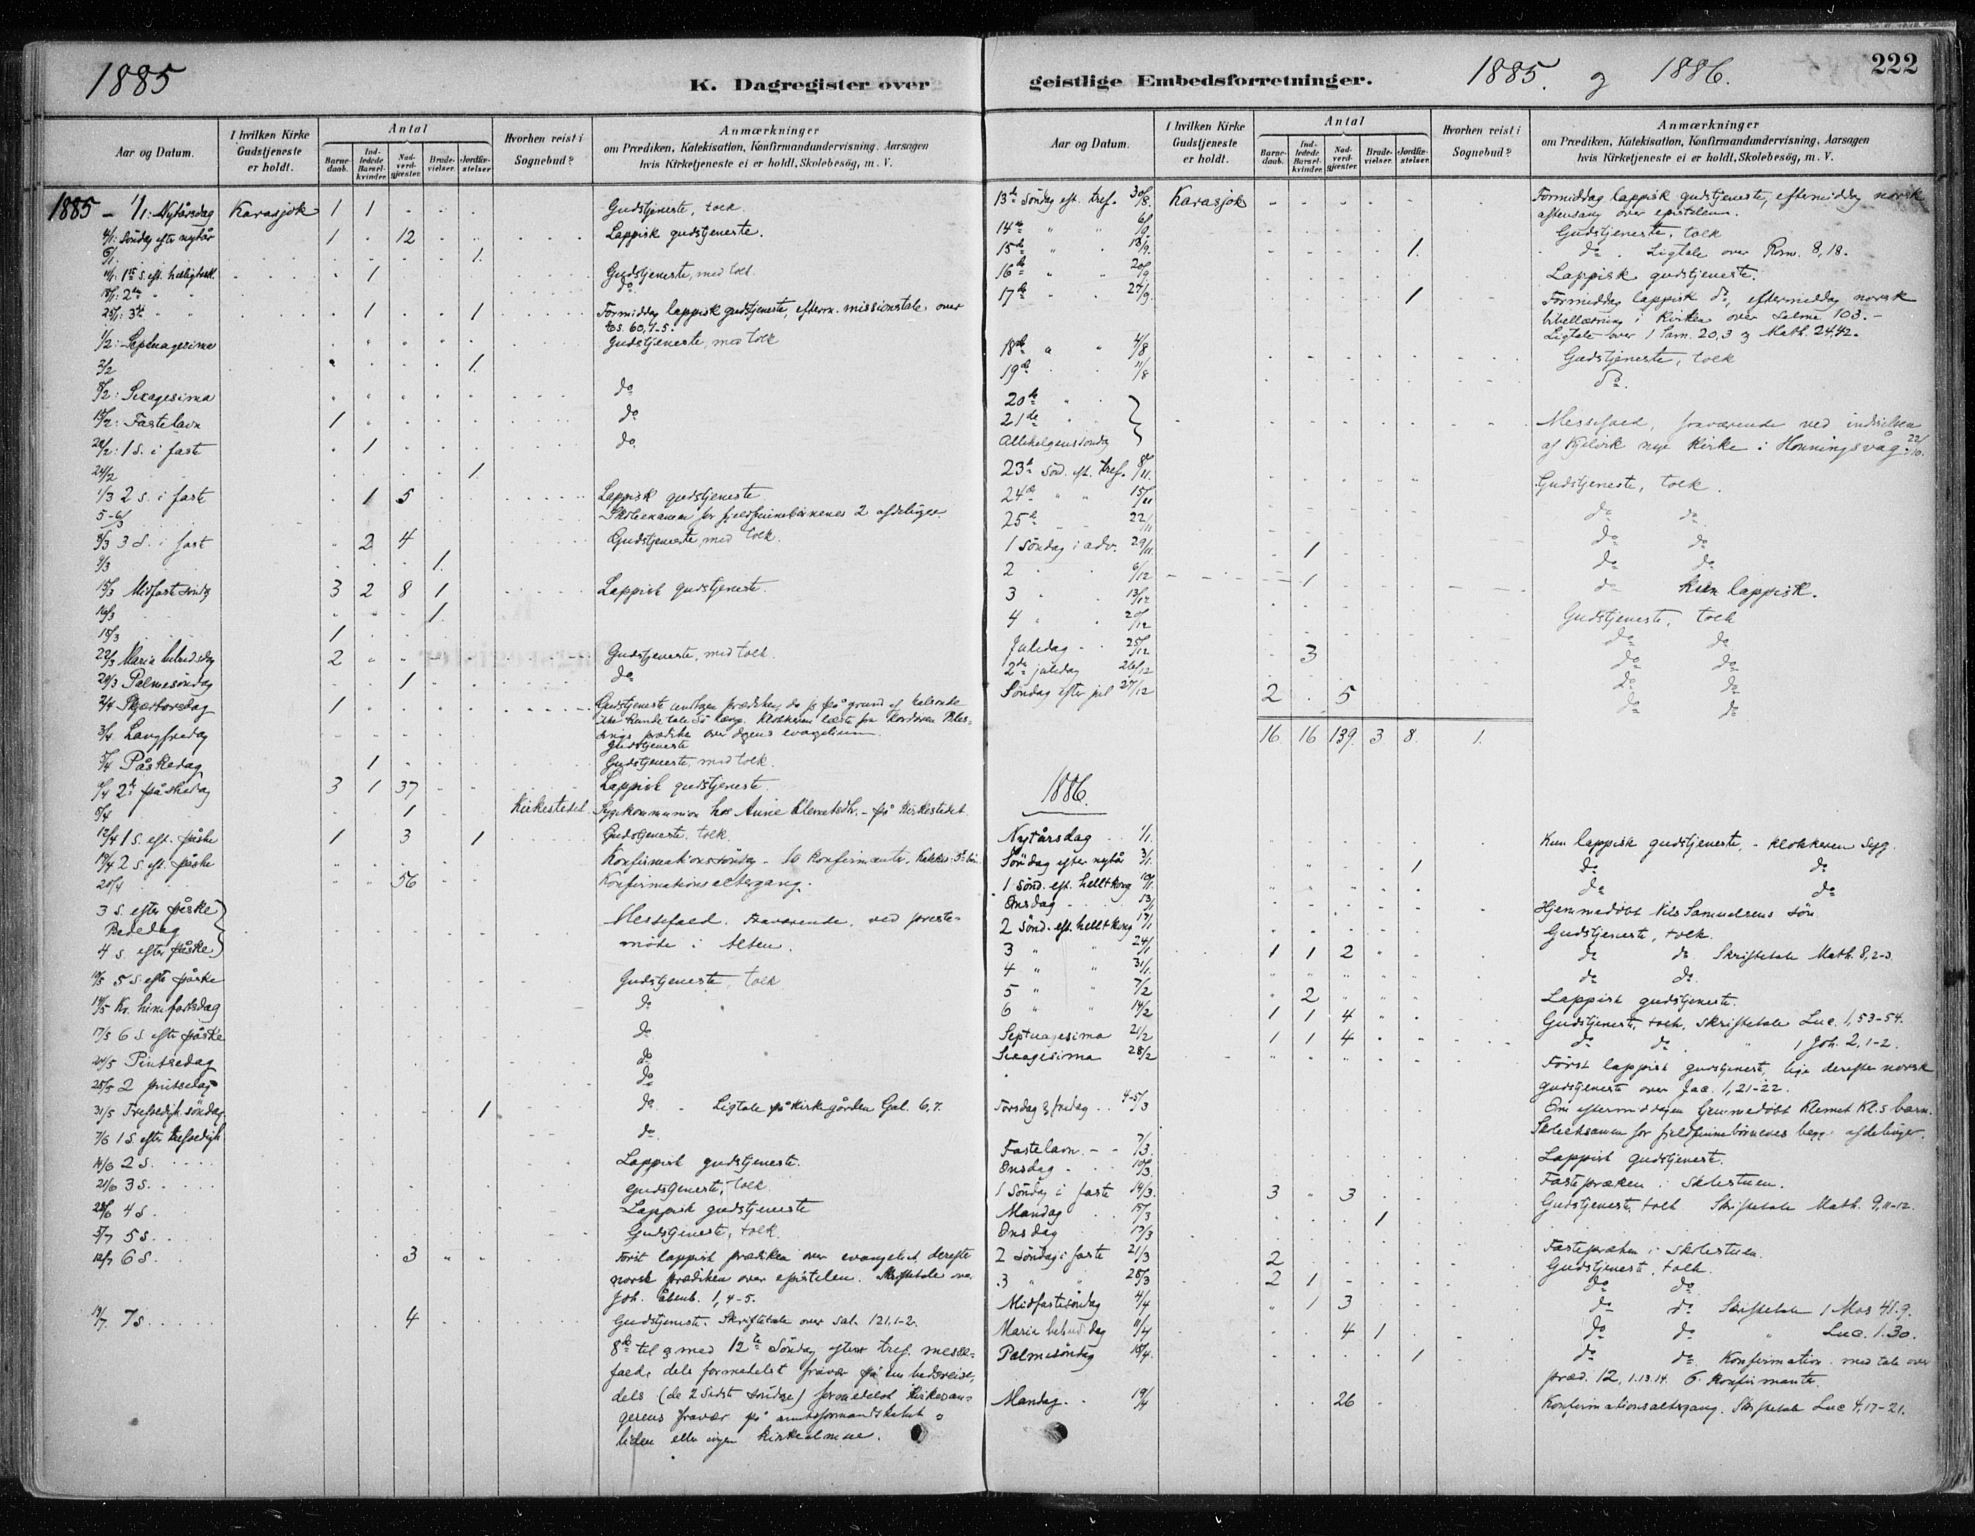 1885
K. Dagregister over
Aar og Datum.
I hvilken Kirke Gudstjeneste er holdt.
Antal
Barnedaab.
Indledede Barselkvinder.
Nadverdgjester.
Brudevielser.
Jordfæstelser.
Hvorhen reist i Sognebud?
Anmærkninger
om Prædiken, Katekisation, Konfirmandundervisning, Aarsagen
hvis Kirketjeneste ei er holdt, Skolebesög, m. V.
1885 - 1/1: Nytårsdag Karasjok 1 1 Gudstjeneste, tolk
4/1: Söndag efter nytår 1 12 Lappisk gudstjeneste.
6/1 1.
11/1: 1ste S. eft. 1 Gudstjeneste, med tolk.
18/1: 2den do
25/1: 3die 1 1 Formiddag lappisk gudstjeneste, efterm. missionstale over
Es. 60, 1-5.
1/2: Septuagesima Gudstjeneste, med tolk
2/2 1.
8/2: Sexagesima do
15/2: Fastelavn 1 do
22/2: 1 S. i faste 1 do
24/2 1.
1/3 2 S. i fast 1 5 Lappisk gudstjeneste
5-6/3 Skoleexamen for fjeldfinnebörnenes 2 afdelinger.
8/3 3 S. i fast 2 4 Gudstjeneste, med tolk.
9/3 1.
15/3 Midfaste söndag 3 2 8 1 Lappisk gudstjeneste.
16/3 1.
1
22/3 Maria bebudsdag 2 Gudstjeneste, med tolk.
29/3 Palmesöndag 1 do
2/4 Skjærtorsdag 1 Gudstjeneste uden prædiken, da jeg på grund af halsonde
ikke kunde tale så længe. Klokkeren læste
prædiken over dagens evangelium.
3/4 Langfredag Gudstjeneste
5/4 Påskedag 1 Gudstjeneste, med tolk.
6/4 2den påskedag 3 1 37 Lappisk gudstjeneste.
8/4 1 Kirkestedet. Sygekommunion hos Anne Klemetsdtr. - på kirkestedet.
12/4 1 S. eft. påske 1 3 1 Gudstjeneste, tolk.
19/4 2 S. eft. påske Konfirmationssöndag - 16 konfirmanter.
20/4 56 Konfirmationsaltergang.
3 S. efter påske
Bededag Messefald. Fraværende ved preste-
4 S. efter påske möde i Alten.
10/5 5 S. efter påske Gudstjeneste, tolk
14/5 Kr. himmelfartsdag do
17/5 6 S. efter påske do
24/5 Pintsedag do
25/5 2 pintsedag do
31/5 Trefoldigh. söndag 1 do Ligtale på kirkegården Gal. 6,7.
7/6 1 S. efter trefoldigh. do
14/6 2 S. Lappisk gudstjeneste.
21/6 3 S. Gudstjeneste, tolk.
28/6 4 S. Lappisk gudstjeneste
5/7 5 S. Gudstjeneste, tolk.
12/7 6 S. 3 Först lappisk prædiken over evangeliet derefter
norsk prædiken over epistelen. Skriftetale over
Joh. åbenb. 1, 4-5.
19/7. 7 S. 4 Gudstjeneste. Skriftetale over Sal. 121.1-2.
8de til og med 12te Söndag efter tref. messe-
fald, dels formedelst fravær på embedsreise,
dels (de 2 sidste söndage) formedelst kirkesan-
gerens fravær på amtsformandskabet og
liden eller ingen kirkealmue.
geistlige Embedsforretninger. 1885. og 1886. 222
Aar og Datum.
I hvilken Kirke Gudstjeneste er holdt.
Antal
Barnedaab.
Indledede Barselkvinder.
Nadverdgjester.
Brudevielser.
Jordfæstelser.
Hvorhen reist i Sognebud?
Anmærkninger
om Prædiken, Katekisation, Konfirmandundervisning, Aarsagen
hvis Kirketjeneste ei er holdt, Skolebesög, m. V.
13de Söndag eft. tref. 30/8. Karasjok Formiddag lappisk gudstjeneste, eftermiddag norsk
aftensang over epistelen.
14de " " 6/9 Gudstjeneste, tolk
15de " " 13/9. 1. do. Ligtale over Rom. 8, 18.
16de " " 20/9 Lappisk gudstjeneste.
17de " " 27/9. 1 Formiddag lappisk do, eftermiddag norsk
bibellæsning i Kirken over Salme 103. -
Ligtale over 1 Sam. 20,3 og Math. 24,42.
18de " " 4/8 Gudstjeneste, tolk
19de 11/8 do.
20de "
21de " Messefald, fraværende ved indvielsen
Allehelgenssöndag af Kjelvik nye Kirke i Honningsvåg. 22/10.
23de Sönd. eft. tref. 8/11. Gudstjeneste, tolk.
24de " " 15/11 do do
25de 22/11 do do
1 Söndag i adv. 29/11. 1 do do
2 6/12 1 do kun lappisk.
3 " 13/12 Gudstjeneste, tolk
4 " 20/12 do do
Juledag 25/12 3 do do
2den juledag 26/12 do do
Söndag efter jul 27/12 2 5 do do
16 16 139. 3 8. 1.
1886.
Nytårsdag 1/1. Kun lappisk gudstjeneste, - klokkeren syg.
Söndag efter nytår 3/1. 1 do do
1 Sönd. eft. helltkong 10/1. do do
Onsdag 13/1 Hjemmedöbt Nils Samuelsens sön.
2 Sönd. eft. hellt kong 17/1 Gudstjeneste, tolk.
3 " " 24/1 1 1 2 do do Skriftetale Math. 8, 2-3.
4 " " 31/1. do do
5 " " 7/2 2 Lappisk gudstjeneste.
6 " " 14/2 1 1 4 Gudstjeneste, tolk, Skriftetale Luc. 1, 53-54.
Septuagesima 21/2 1 1 4 do do. " 1 Joh. 2, 1-2.
Sexagesima 28/2 Först lappisk gudstjeneste, lige derefter norsk
gudstjeneste over Jac. 1, 21-22.
Om eftermiddagen hjemmedöbt Klemet Kl.s barn.
Torsdag & fredag 4-5/3 Skoleexamen for fjeldfinnebörnenes begge afdelinger.
Fastelavn 7/3. Lappisk gudstjeneste.
Onsdag 10/3 Fastepræken i skolestuen.
1 Söndag i faste 14/3. 3 " 3 Gudstjeneste, tolk Skriftetale Math. 9, 11-12.
Mandag 15/3 1
Onsdag 17/3 Fastepræken i skolestuen.
2 Söndag i faste 21/3 2 Gudstjeneste, tolk.
3 " " 28/3 2 1 do do
Midfastesöndag 4/4 " 1 3 do do Skriftetale 1 Mos
Maria bebuds dag 11/4 4 1 do do " Luc. 1.30.
Palmesöndag 18/4. 1 do do Konfirmation med tale over
præd. 12, 1.13.14. 6 konfirmanter.
Mandag 19/4 26 Konfirmationsaltergang. Skriftetale Luc 4, 17-21.